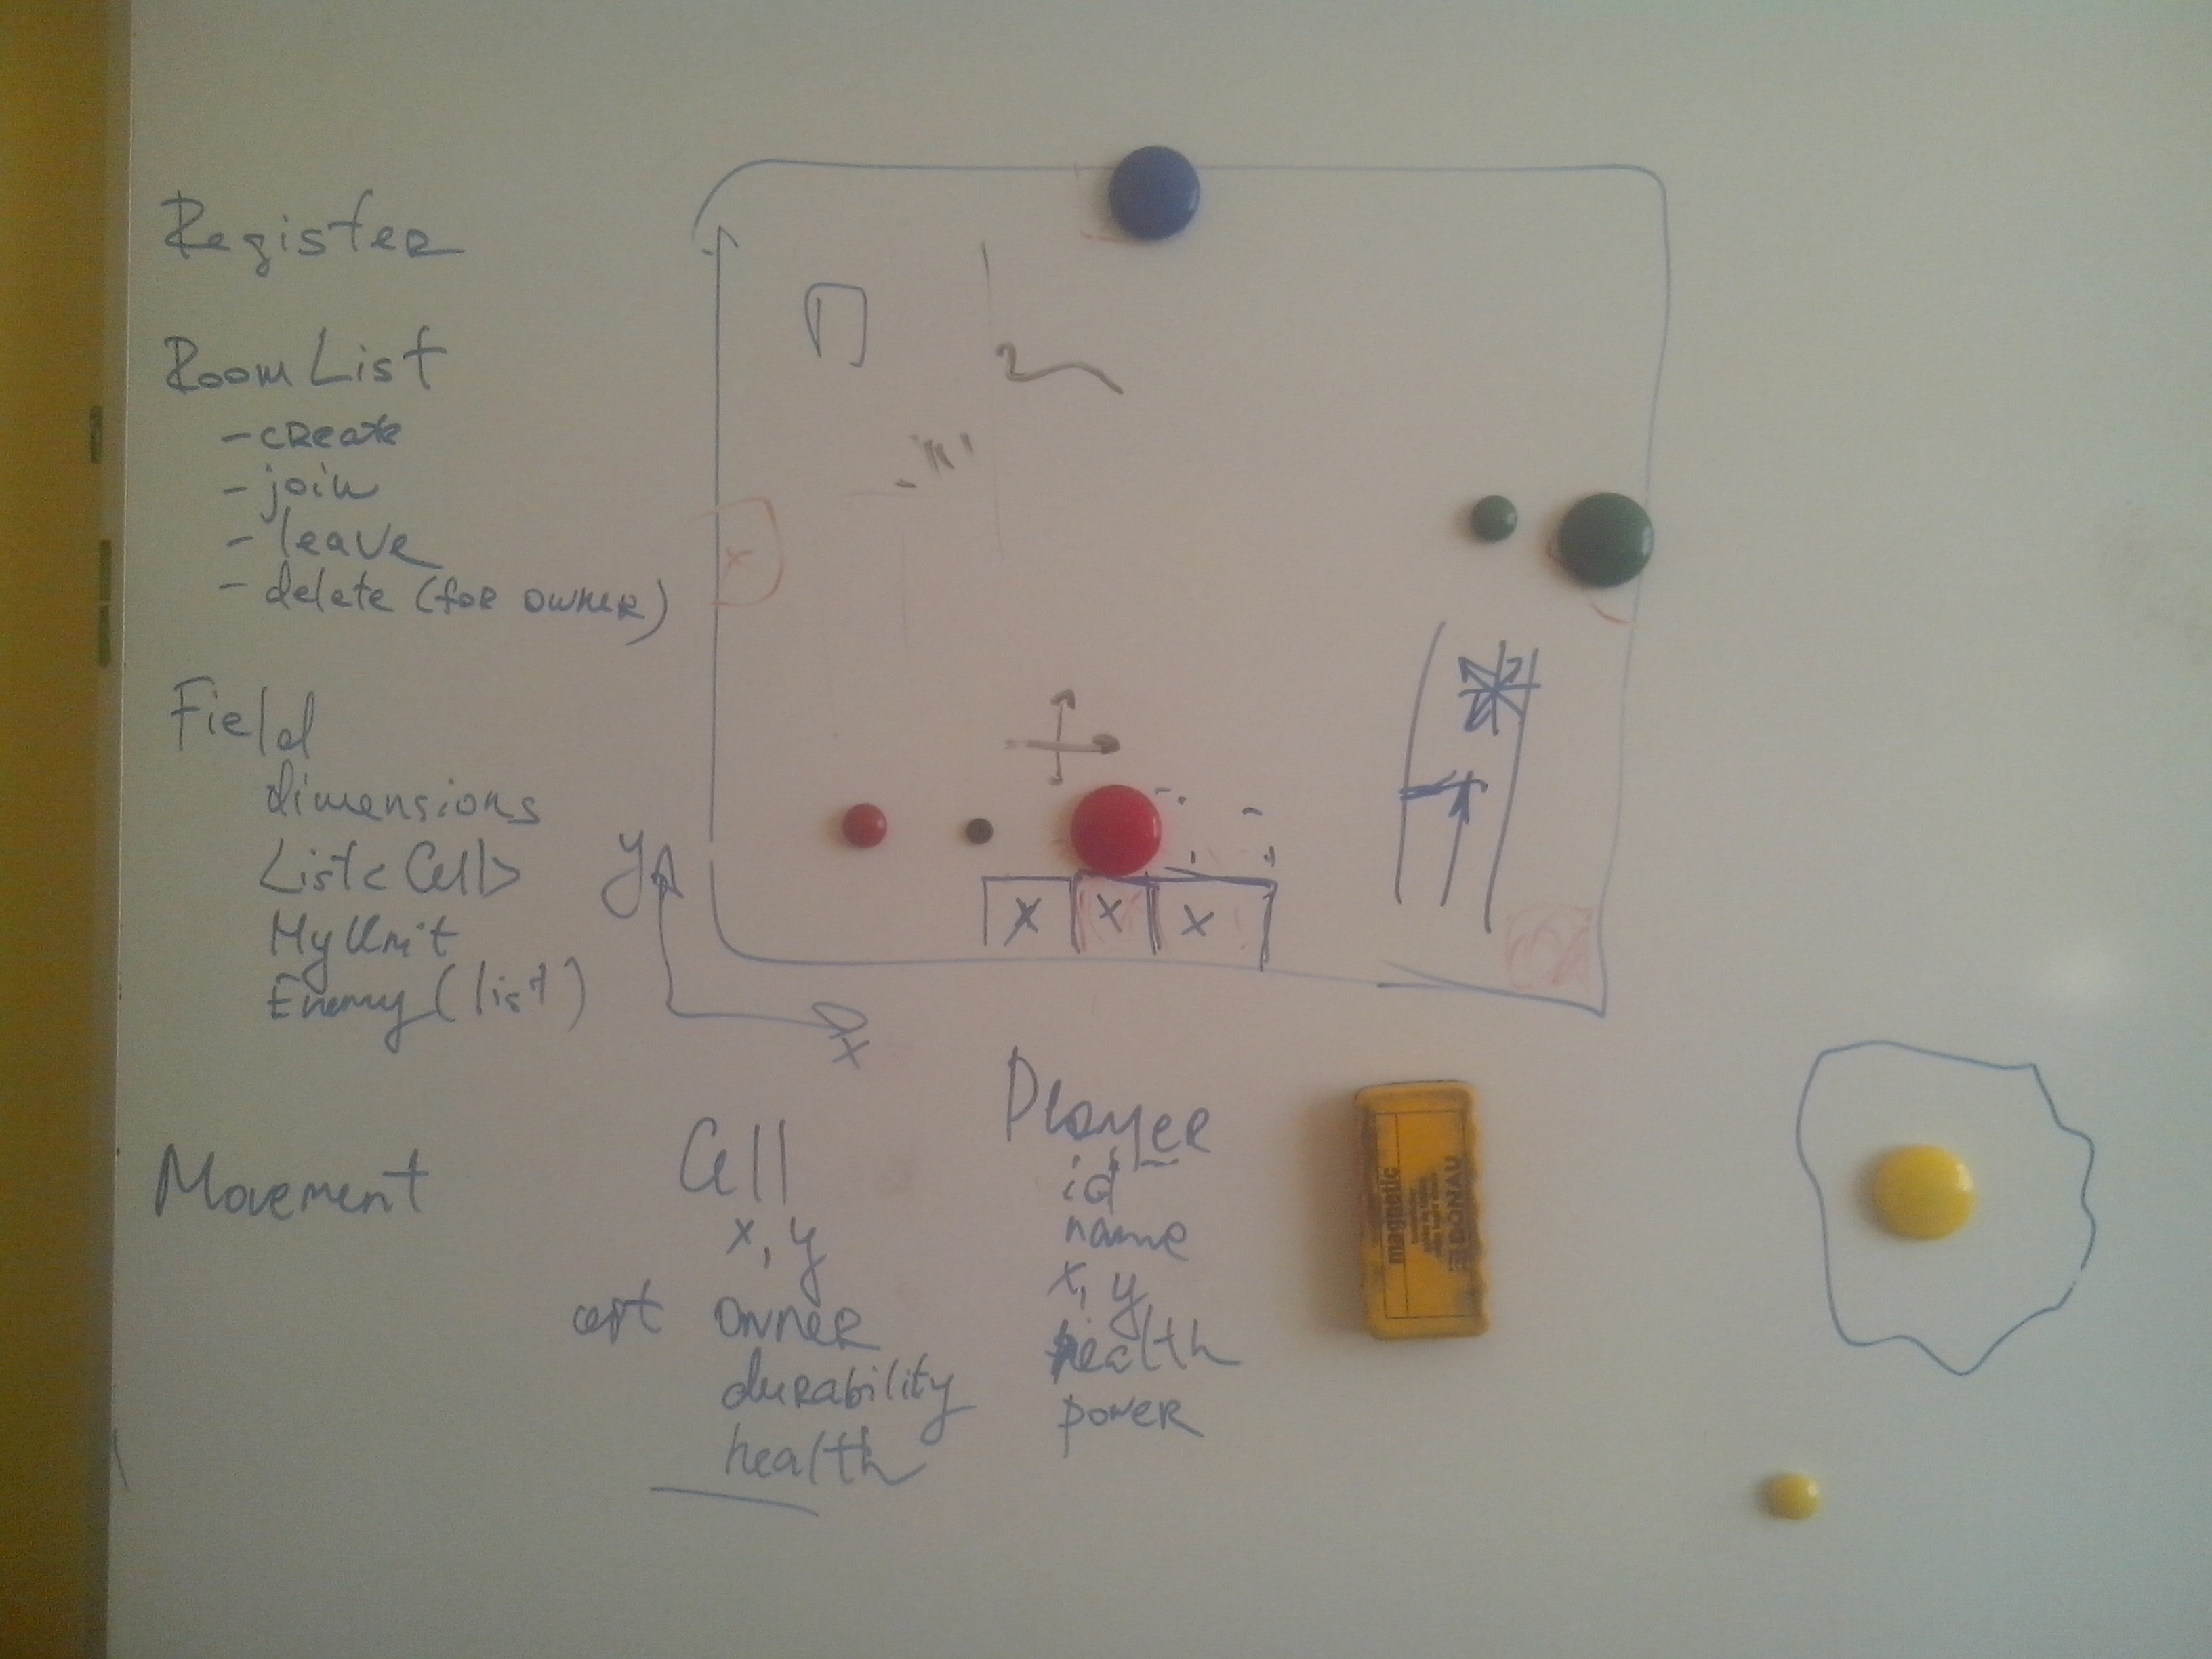 Register
Room List
- create
- join
- leave
- delete (for owner)
Field
dimensions
List<Cell>
My Unit
Enemy (list)
Movement
y
x
x x x
x
Cell
x, y
opt owner
durability
health
Player
id
name
x, y
health
power
magnetic
DONAU